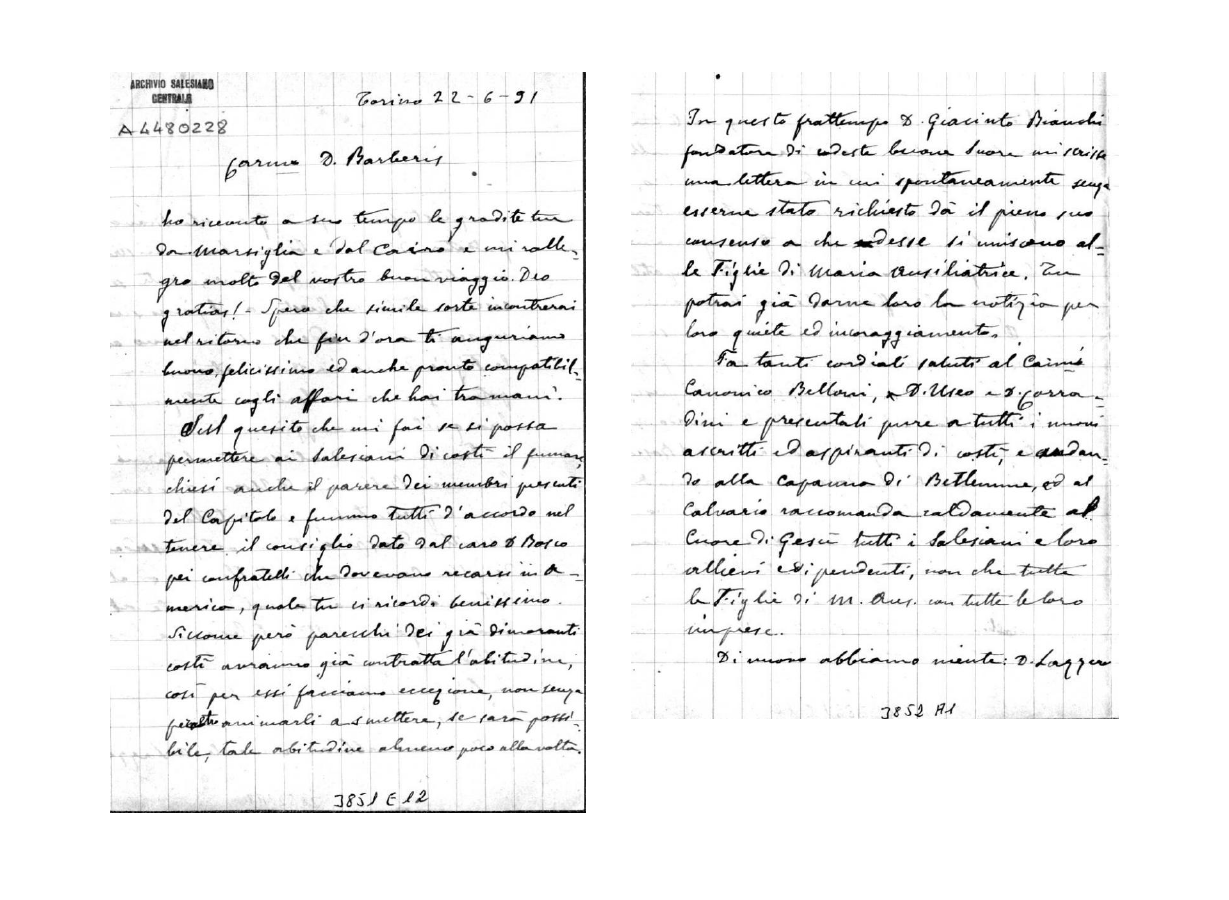 ARCHIVIO SALESIANO
CENTRALE
A4480228
Torino 22-6-91
Carmo D. Barberis
ho ricevuto a suo tempo le gradite tue
da Marsiglia e dal Cairo e mi ralle-
gro molto del vostro buon viaggio. Deo
gratias! - Spero che simile sorte incontrerai
nel ritorno che fin d'ora ti auguriamo
buono, felicissimo ed anche pronto compatibil-
mente cogli affari che hai tra mani.
Sul quesito che mi fai se si possa
permettere ai Salesiani di costì il fumare,
chiesi anche il parere dei membri presenti
del Capitolo e fummo tutti d'accordo nel
tenere il consiglio dato dal caro D Bosco
pei confratelli che dovevano recarsi in A-
merica, quale tu ci ricordi benissimo.
Siccome però parecchi dei già dimoranti
costì avranno già contratta l'abitudine,
così per essi facciamo eccezione, non senza
peraltro animarli a smettere, se sarà possi-
bile, tale abitudine almeno poco alla volta.
3851 E 12
In questo frattempo D. Giacinto Bianchi
fondatore di codeste buone Suore mi scrisse
una lettera in cui spontaneamente senza
esserne stato richiesto dà il pieno suo
consenso a che desse si uniscano al-
le Figlie di Maria Ausiliatrice. Tu
potrai già darne loro la notizia per
loro quiete ed incoraggiamento.
Fa tanti cordiali saluti al Carmo
Canonico Belloni, a D. Useo e D. Corra-
dini e presentali pure a tutti i nuovi
ascritti ed aspiranti di costì, e andan-
do alla capanna di Betlemme, ed al
Calvario raccomanda caldamente al
Cuore di Gesù tutti i Salesiani e loro
allievi e dipendenti, non che tutte
le Figlie di M. Aus. con tutte le loro
imprese.
Di nuovo abbiamo niente: D. Lazzero
3852 A1